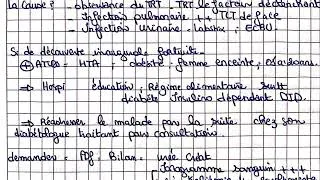 La cause ? - observance du TRT - TRT le facteur déclenchant
Infection pulmonaire ++ TLT de face
Infection urinaire - Labstix, ECBU.
Si de découverte inaugurale fortuite
⊕ ATCD - HTA + obésité - femme enceinte,
→ Hospi éducation, Régime alimentaire
diabète insulino dépendant DID.
→ Réadresser le malade par la suite chez son
diabétologue traitant pour consultation.
demander = Bilan: urée Créat
Ionogramme sanguin +++